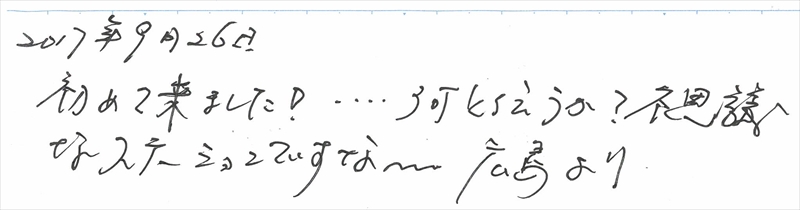 2017年9月26日
初めて来ました! ‥‥何と言うか?不思議
なステーションですな〜 広島より